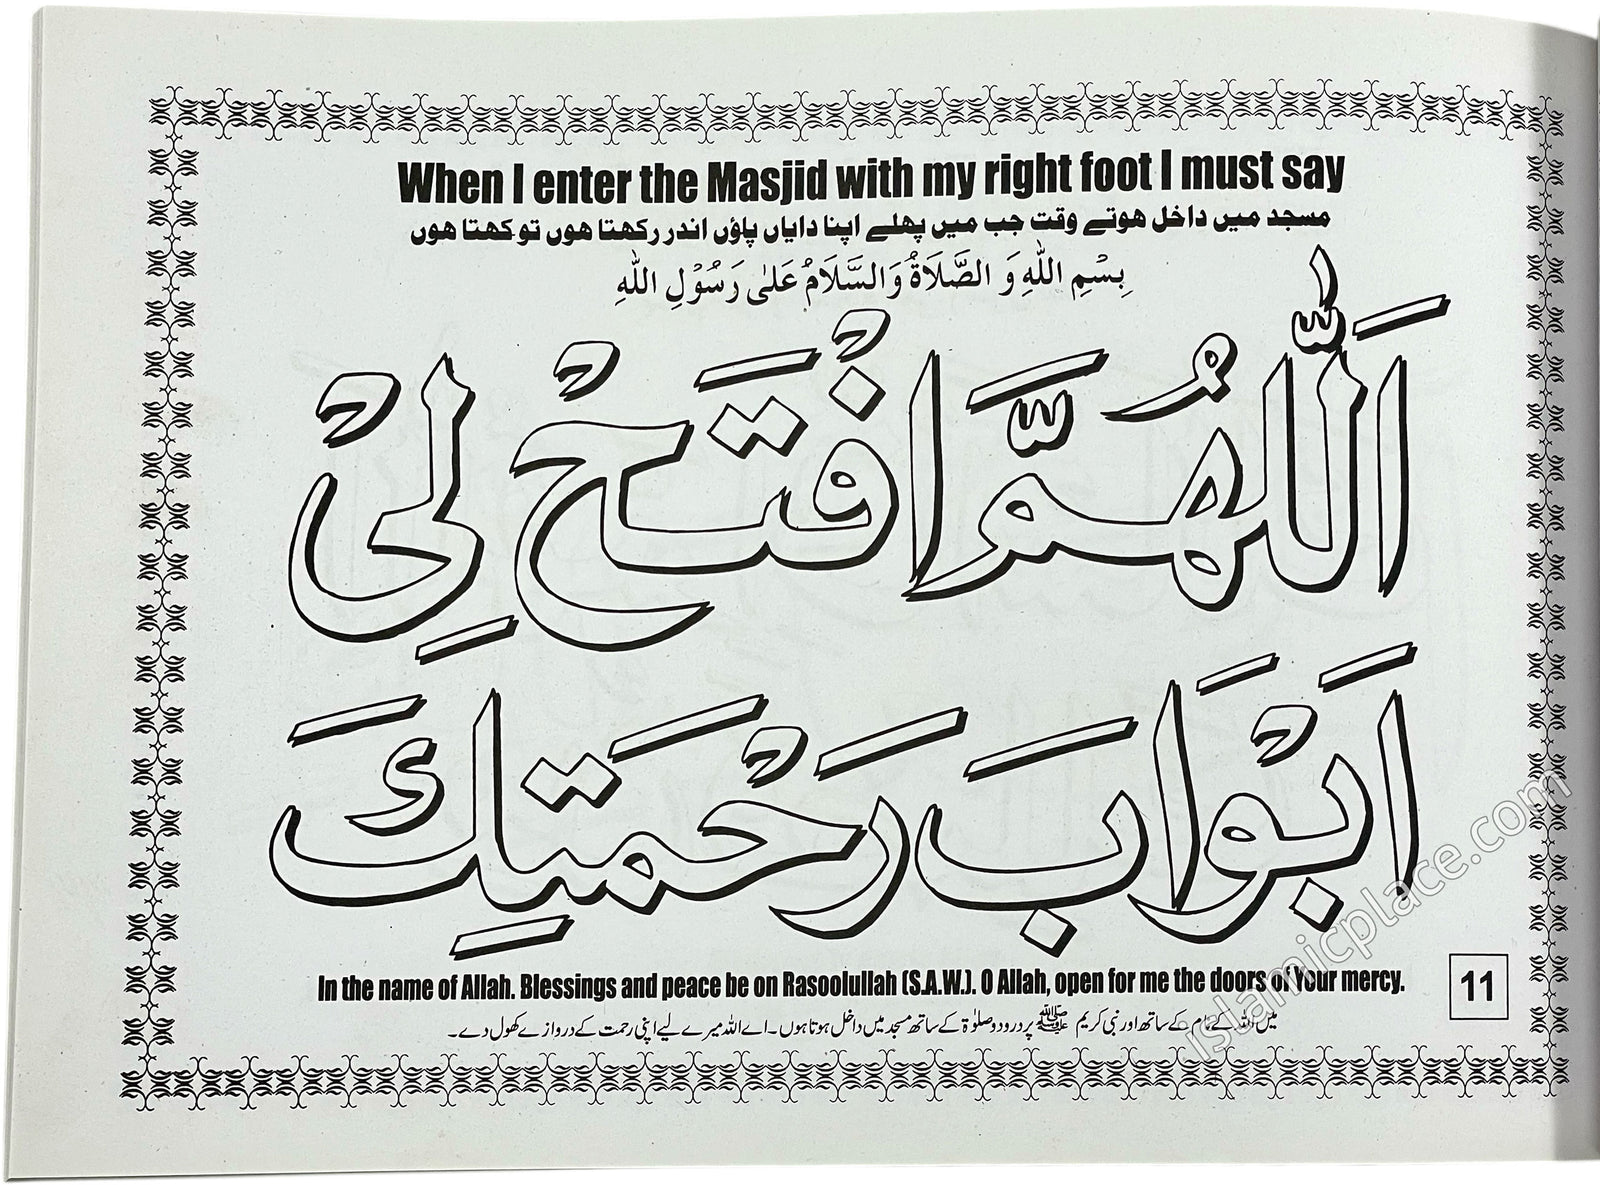 When I enter the Masjid with my right foot I must say
مسجد میں داخل ہوتے وقت جب میں پہلے اپنا دایاں پاؤں اندر رکھتا ہوں تو کہتا ہوں
بِسْمِ اللّٰهِ وَ الصَّلَاةُ وَالسَّلَامُ عَلٰى رَسُوْلِ اللّٰهِ
اَللّٰهُمَّ افْتَحْ لِىْ
اَبْوَابَ رَحْمَتِكَ
In the name of Allah. Blessings and peace be on Rasoolullah (S.A.W.). O Allah, open for me the doors of Your mercy.
میں اللہ کے نام کے ساتھ اور نبی کریم ﷺ پر درود و صلوٰۃ کے ساتھ مسجد میں داخل ہوتا ہوں۔ اے اللہ میرے لیے اپنی رحمت کے دروازے کھول دے۔
11
islamicplace.com